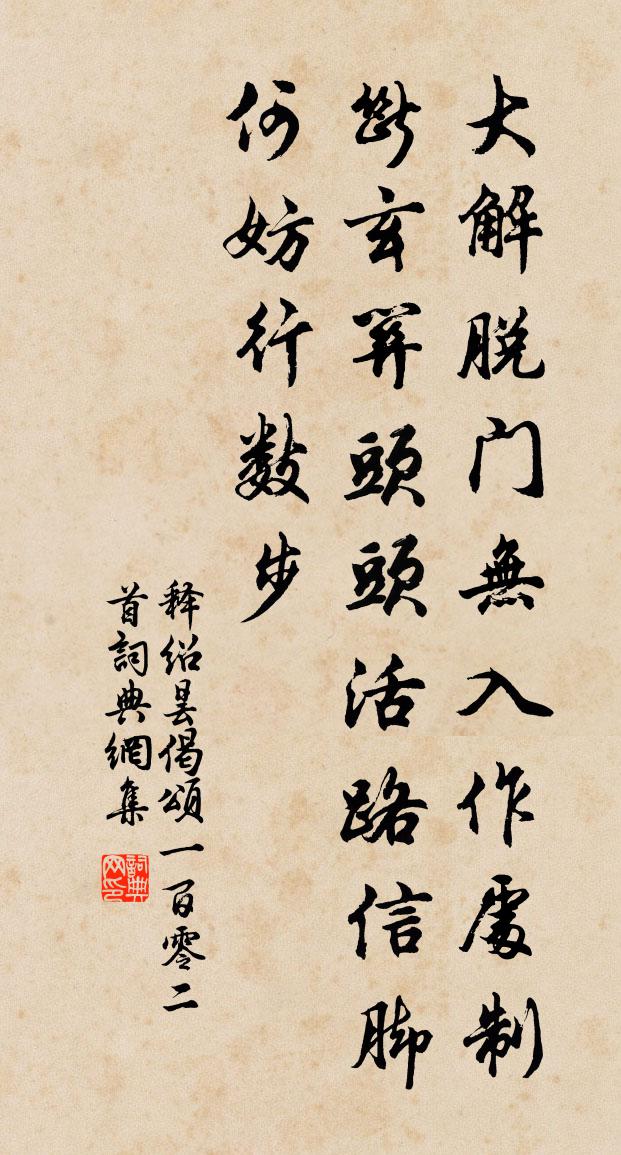 大解脱门無入作處制
斷玄關頭頭活路信脚
何妨行数步
释绍昙偈頌一百零二
首詞典網集
詞典网印